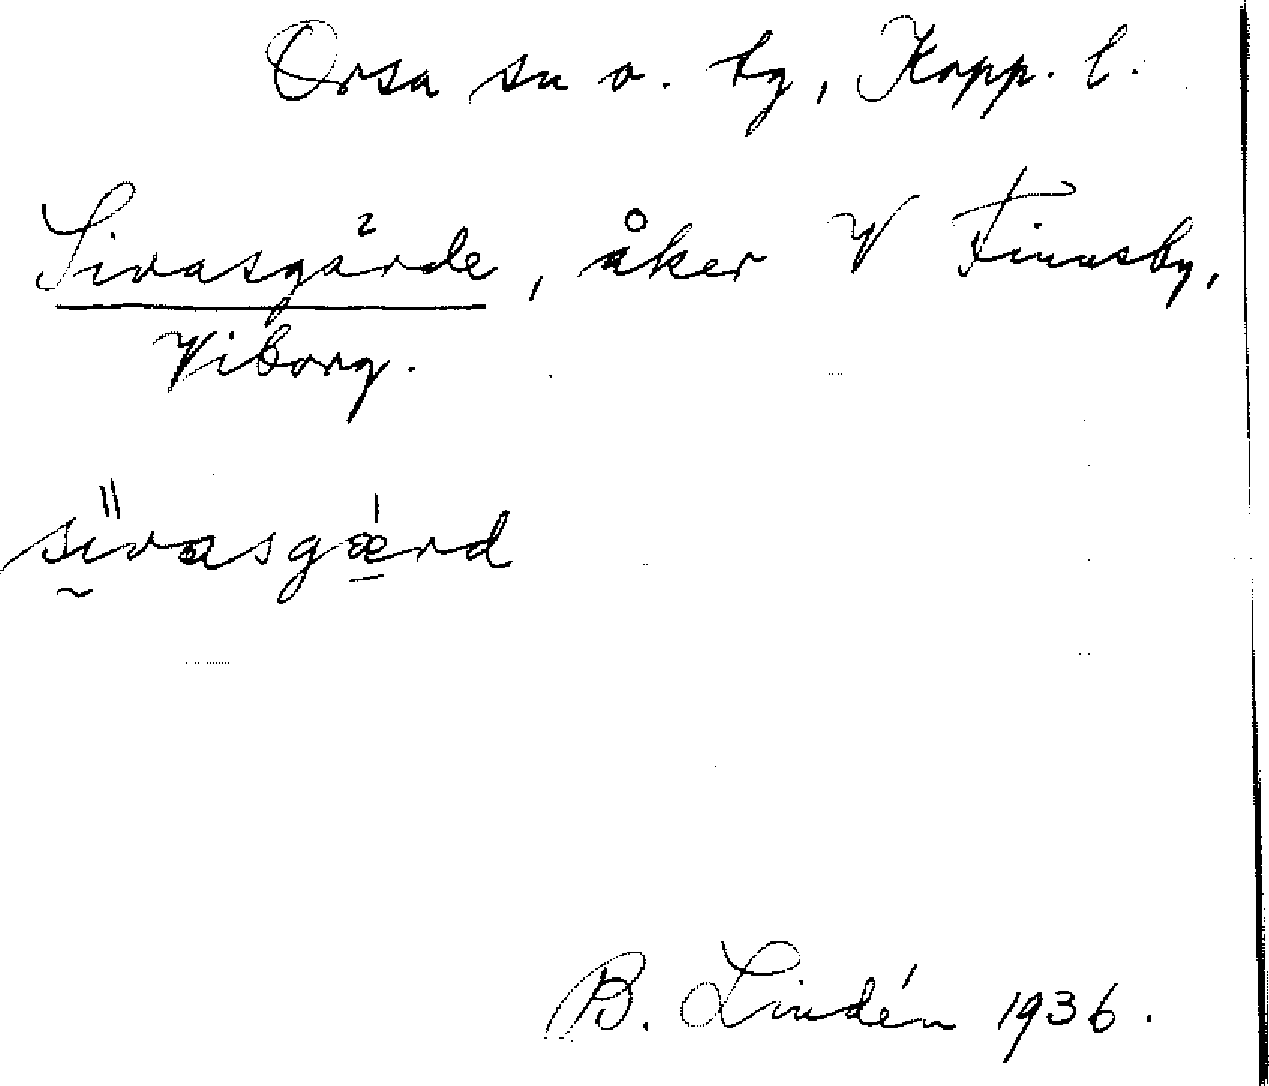 Orsa sn o. by, Kopp. l.
Sivasgärde, åker V Finnsby,
Viborg.
sivasgærd
B. Lindén 1936.